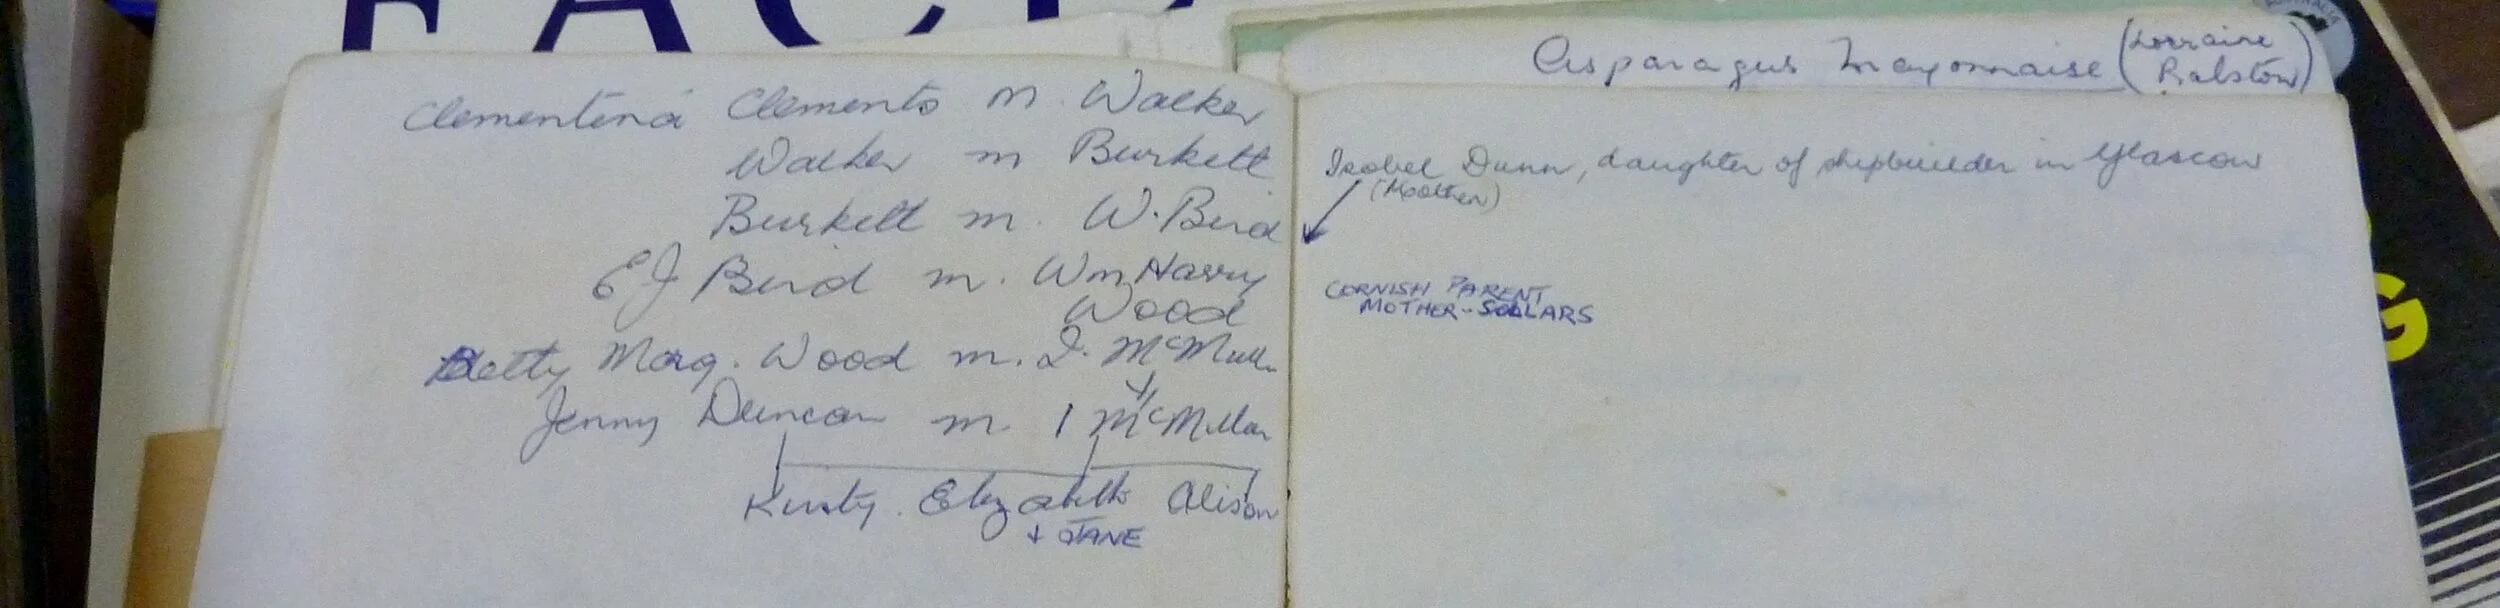 Clementena Clements m. Walker
Walker m Burkett
Burkett m. W. Bird
E J Bird m. Wm Harry
Wood
Betty Marg. Wood m. I. McMull
Jenny Duncan m. I McMillan
Kirsty. Elizabeth Alison
+ JANE
Asparagus Mayonnaise (Lorraine
Ralston)
Isobel Dunn, daughter of shipbuilder in Glascow
(Mother)
CORNISH PARENT
MOTHER - SOLLARS
AUSTRALIA
G